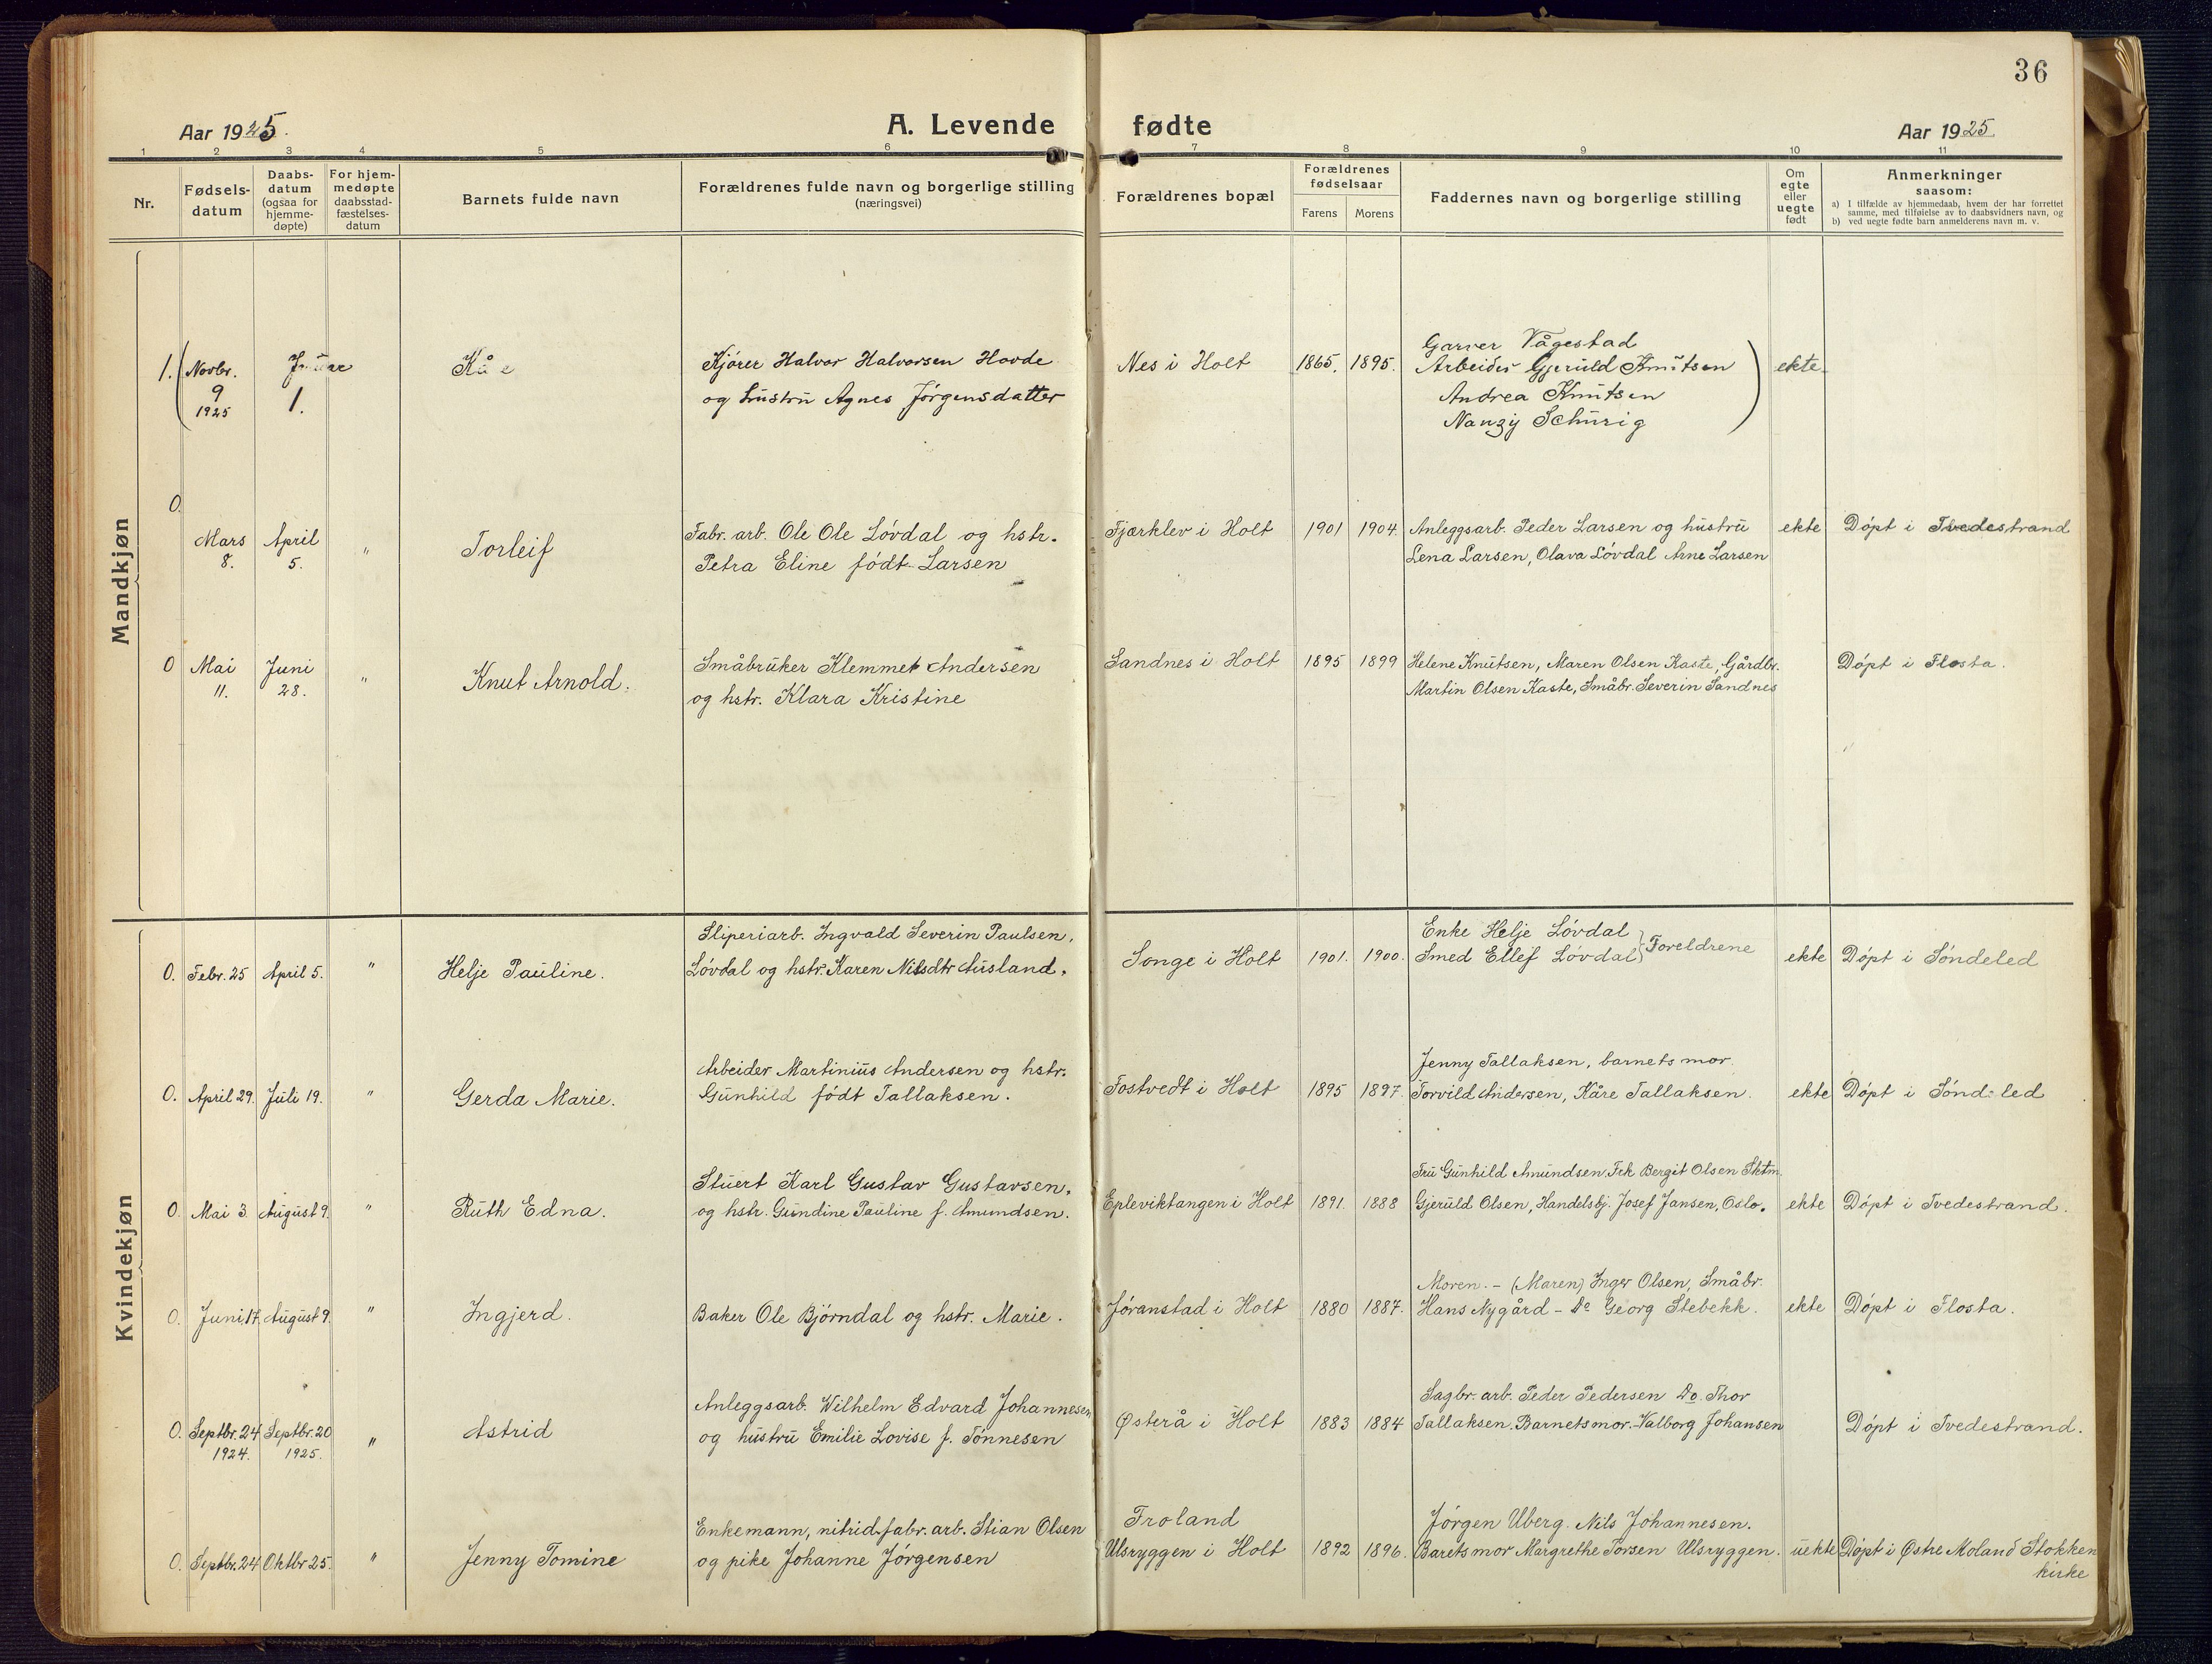 36
Aar 1925.
A. Levende fødte
Aar 1925
1 2 3 4 5 6 7 8 9 10 11
Nr.
Fødsels-
datum
Daabs-
datum
(ogsaa for
hjemme-
døpte)
For hjem-
medøpte
daabsstad-
fæstelses-
datum
Barnets fulde navn
Forældrenes fulde navn og borgerlige stilling
(næringsvei)
Forældrenes bopæl
Forældrenes
fødselsaar
Farens Morens
Faddernes navn og borgerlige stilling
Om
egte
eller
uegte
født
Anmerkninger
saasom:
a) I tilfælde av hjemmedaab, hvem der har forrettet
samme, med tilføielse av to daabsvidners navn, og
b) ved uegte fødte barn anmelderens navn m. v.
Mandkjøn
1. Novbr.
9
1925
Januar
1.
Kåre
Kjører Halvor Halvorsen Hovde
og hustru Agnes Jørgensdatter
Nes i Holt 1865. 1895.
Garver Vågestad
Arbeider Gjeruld Knutsen
Andrea Knutsen
Nanzy Schurig
ekte.
0.
Mars
8.
April
5.
"
Torleif
Fabr. arb. Ole Ole Løvdal og hstr.
Petra Eline født Larsen
Fjærklev i Holt 1901 1904.
Anleggsarb. Peder Larsen og hustru
Lena Larsen, Olava Løvdal Arne Larsen
ekte Døpt i Tvedestrand
0 Mai
11.
Juni
28.
"
Knut Arnold.
Småbruker Klemmet Andersen
og hstr. Klara Kristine
Sandnes i Holt 1895 1899
Helene Knutsen, Maren Olsen Kaste, Gårdbr.
Martin Olsen Kaste, Småbr. Severin Sandnes
Døpt i Flosta.
Kvindekjøn
0. Febr. 25 April 5. "
Helje Pauline.
Sliperiarb. Ingvald Severin Paulsen.
Løvdal og hstr. Karen Nilsdtr Ausland.
Songe i Holt 1901. 1900.
Enke Helje Løvdal
Smed Ellef Løvdal
Foreldrene
ekte Døpt i Søndeled
0. April 29. Juli 19. "
Gerda Marie.
Arbeider Martinius Andersen og hstr.
Gunhild født Tallaksen.
Fostvedt i Holt 1895 1897.
Jenny Tallaksen, barnets mor.
Torvild Andersen, Kåre Tallaksen.
ekte Døpt i Søndeled
0. Mai 3. August 9. "
Ruth Edna.
Stuert Karl Gustav Gustavsen.
og hstr. Gundine Pauline f. Amundsen.
Epleviktangen i Holt 1891. 1888
Fru Gunhild Amundsen. Frk Bergit Olsen Sktm.
Gjeruld Olsen, Handelsbj. Josef Jansen, Oslo.
ekte Døpt i Tvedestrand.
0. Juni 17. August 9. "
Ingjerd.
Baker Ole Bjørndal og hstr. Marie.
Jøranstad i Holt 1880 1887.
Moren. – (Maren) Inger Olsen, Småbr.
Hans Nygård – Do Georg Stebekk.
ekte Døpt i Flosta.
0. Septbr. 24
1924.
Septbr. 20
1925.
"
Astrid
Anleggsarb. Wilhelm Edvard Johannesen
og hustru Emilie Lovise f. Tønnesen
Østerå i Holt 1883 1884
Sagbr. arb. Peder Pedersen Do. Thor
Tallaksen. Barnets mor. Valborg Johansen
Døpt i Tvedestrand.
0. Septbr. 24 Oktbr 25. "
Jenny Tomine
Enkemann, nitrid-fabr. arb. Stian Olsen
og pike Johanne Jørgensen
Froland
Ulsryggen i Holt 1892 1896.
Jørgen Uberg. Nils Johannesen.
Barets mor Margrethe Torsen Ulsryggen.
uekte Døpt i Østre Moland Stokken
kirke